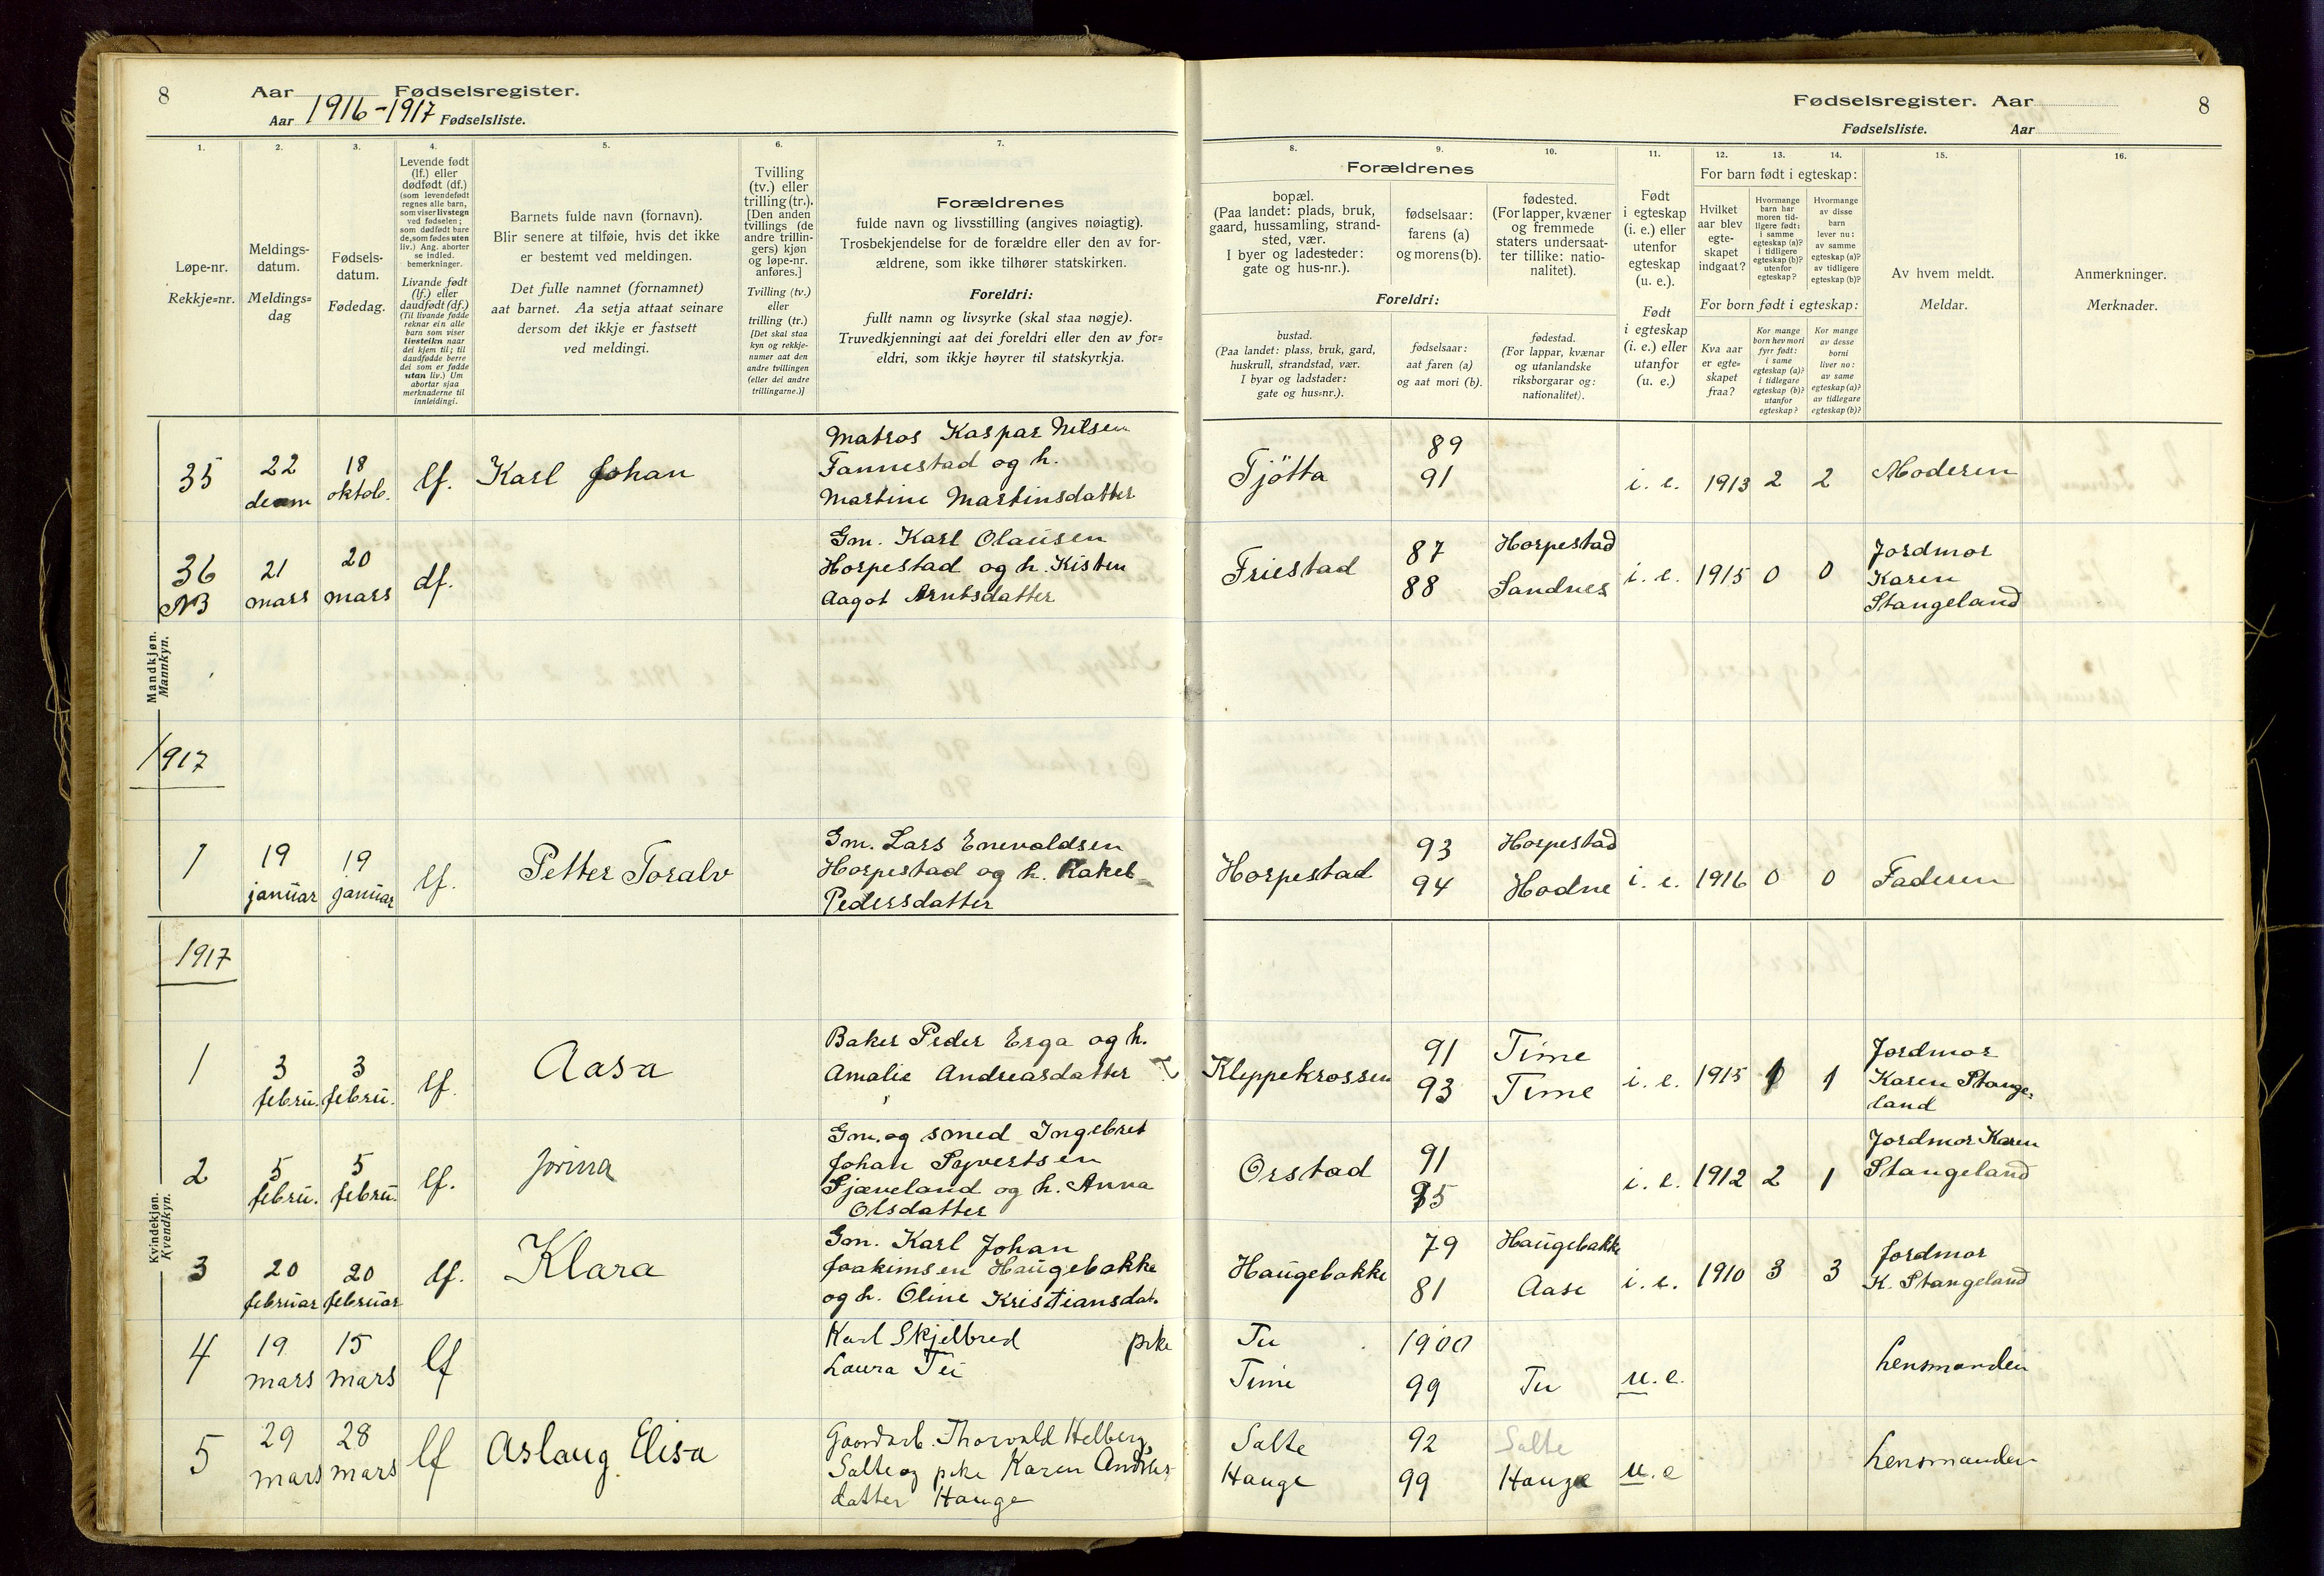 8
Aar 1916-1917 Fødselsregister.
Aar Fødselsliste.
1.
2.
3.
4.
5.
6.
7.
Løpe-nr.
Rekkje=nr.
Meldings-
datum.
Meldings=
dag
Fødsels-
datum.
Fødedag.
Levende født
(lf.) eller
dødfødt (df.)
(som levendefødt
regnes alle barn,
som viser livstegn
ved fødselen;
som dødfødt bare
de, som fødes uten
liv.) Ang. aborter
se indled.
bemerkninger.
Livande født
(lf.) eller
daudfødt (df.)
(Til livande fødde
reknar ein alle
born som viser
livsteikn naar
dei kjem til; til
daudfødde berre
dei som er fødde
utan liv.) Um
abortar sjaa
merknaderne til
innleidingi.
Barnets fulde navn (fornavn).
Blir senere at tilføie, hvis det ikke
er bestemt ved meldingen.
Det fulle namnet (fornamnet)
aat barnet. Aa setja attaat seinare
dersom det ikkje er fastsett
ved meldingi.
Tvilling
(tv.) eller
trilling (tr.).
[Den anden
tvillings (de
andre trillin-
gers) kjøn
og løpe-nr.
anføres.]
Tvilling (tv.)
eller
trilling (tr.)
[Det skal staa
kyn og rekkje-
numer aat den
andre tvillingen
(eller dei andre
trillingarne.)]
Forældrenes
fulde navn og livsstilling (angives nøiagtig).
Trosbekjendelse for de forældre eller den av for-
ældrene, som ikke tilhører statskirken.
Foreldri:
fullt namn og livsyrke (skal staa nøgje).
Truvedkjenningi aat dei foreldri eller den av for=
eldri, som ikkje høyrer til statskyrkja.
Mandkjøn.
Mannkyn.
35
22
decem
18
oktob.
lf.
Karl Johan
Matros Kaspar Nilsen
Fannestad og h.
Martine Martinsdatter
36
NB
21
mars
20
mars
df.
Gm. Karl Olausen
Horpestad og h. Kisten
Aagot Arntsdatter
1917
1
19
januar
19
januar
lf.
Petter Toralv
Gm. Lars Enevoldsen
Horpestad og h. Rakel
Pedersdatter
1917
Kvindekjøn.
Kvendkyn.
1
3
febru.
3
febru.
lf.
Aasa
Baker Peder Erga og h.
Amalie Andreasdatter
2
5
febru.
5
febru.
lf.
Jorina
Gm. og smed Ingebret
Johan Syvertsen
Tjæveland og h. Anna
Olsdatter
3
20
februar
20
februar
lf.
Klara
Gm. Karl Johan
Joakimsen Haugebakke
og h. Oline Kristiansdat.
4
19
mars
15
mars
lf
Karl Skjelbred
pike
Laura Tu
5
29
mars
28
mars
lf
Aslaug Elisa
Gaardarb. Thorvald Helberg
Salte og pike Karen Andreas
datter Hauge
Fødselsregister. Aar
8
Fødselsliste. Aar
8.
9.
10.
11.
12.
13.
14.
15.
16.
Forældrenes
bopæl.
(Paa landet: plads, bruk,
gaard, hussamling, strand-
sted, vær.
I byer og ladesteder:
gate og hus-nr.).
fødselsaar:
farens (a)
og morens (b).
fødested.
(For lapper, kvæner
og fremmede
staters undersaat-
ter tillike: natio-
nalitet).
Foreldri:
bustad.
(Paa landet: plass, bruk, gard,
huskrull, strandstad, vær.
I byar og ladstader:
gate og hus=nr.).
fødselsaar:
aat faren (a)
og aat mori (b).
fødestad.
(For lappar, kvænar
og utanlandske
riksborgarar og:
nationalitet).
Født
i egteskap
(i. e.) eller
utenfor
egteskap
(u. e.).
Født
i egteskap
(i. e.) eller
utanfor
(u. e.)
For barn født i egteskap:
Hvilket
aar blev
egte-
skapet
indgaat?
Hvormange
barn har
moren tid-
ligere født:
i samme
egteskap (a)?
i tidligere
egteskap (b)?
utenfor
egteskap?
Hvormange
av disse
barn
lever nu:
av samme
egteskap (a)?
av tidligere
egteskap (b)?
For born født i egteskap:
Kva aar
er egte=
skapet
fraa?
Kor mange
born hev mori
fyrr født:
i same
egteskap (a)?
i tidlegare
egteskap (b)?
utanfor
egteskap?
Kor mange
av desse
borni
liver no:
av same
egteskap (a)?
av tidlegare
egteskap (b)?
Av hvem meldt.
Meldar.
Anmerkninger.
Merknader.
Tjötta
89
91
i. e.
1913
2
2
Moderen
Friestad
87
88
Horpestad
Sandnes
i. e.
1915
0
0
Jordmor
Karen
Stangeland
Horpestad
93
94
Horpestad
Hodne
i. e.
1916
0
0
Faderen
Kleppekrossen
91
93
Time
Time
i. e.
1915
1
1
Jordmor
Karen Stange-
land
Orstad
91
85
i. e.
1912
2
1
Jordmor Karen
Stangeland
Haugebakke
79
81
Haugebakke
Aase
i. e.
1910
3
3
Jordmor
K. Stangeland
Tu
Time
1900
99
Tu
u. e.
Lensmanden
Salte
Hauge
92
99
Salte
Hauge
u. e
Lensmanden